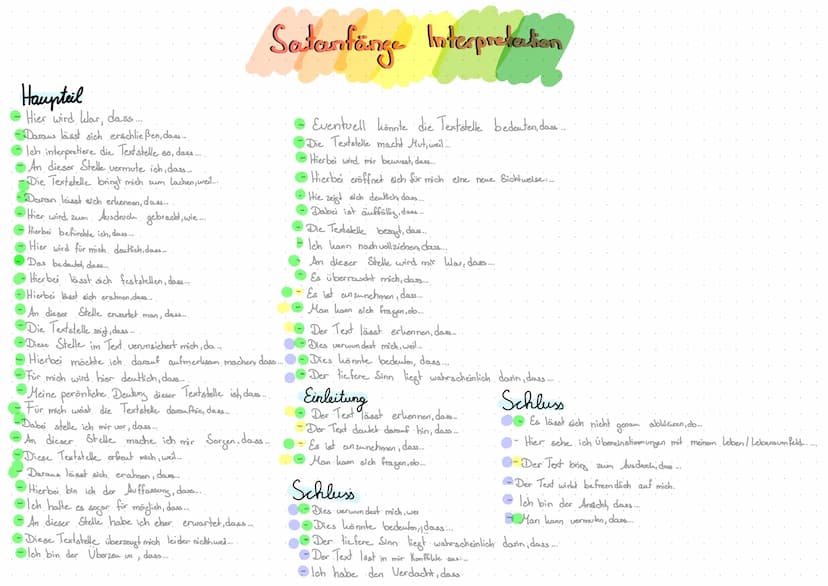 Satzanfänge Interpretation
Haupteil
- Hier wird klar, dass...
- Daraus lässt sich erschließen, dass...
- Ich interpretiere die Textstelle so, dass...
- An dieser Stelle vermute ich, dass...
- Die Textstelle bringt mich zum lachen, weil...
- Daran lässt sich erkennen, dass...
- Hier wird zum Ausdruck gebracht, wie...
- Hierbei befürchte ich, dass...
- Hier wird für mich deutlich, dass...
- Das bedeutet, dass...
- Hierbei lässt sich feststellen, dass...
- Hierbei lässt sich erahnen, dass...
- An dieser Stelle erwartet man, dass...
- Die Textstelle zeigt, dass...
- Diese Stelle im Text verunsichert mich, da...
- Hierbei möchte ich darauf aufmerksam machen, dass...
- Für mich wird hier deutlich, dass...
- Meine persönliche Deutung dieser Textstelle ist, dass...
- Für mich weist die Textstelle daraufhin, dass...
- Dabei stelle ich mir vor, dass...
- An dieser Stelle mache ich mir Sorgen, dass...
- Diese Textstelle erfreut mich, weil...
- Daraus lässt sich erahnen, dass...
- Hierbei bin ich der Auffassung, dass...
- Ich halte es sogar für möglich, dass...
- An dieser Stelle habe ich eher erwartet, dass...
- Diese Textstelle überzeugt mich leider nicht, weil...
- Ich bin der, dass...
- Eventuell könnte die Textstelle bedeuten, dass...
- Die Textstelle macht Mut, weil...
- Hierbei wird mir bewusst, dass...
- Hierbei eröffnet sich für mich eine neue Sichtweise...
- Hie zeigt sich deutlich, dass...
- Dabei ist auffällig, dass...
- Die Textstelle besagt, dass...
- Ich kann nachvollziehen, dass...
- An dieser Stelle wird mir klar, dass...
- Es überrascht mich, dass...
- Es ist anzunehmen, dass...
- Man kann sich fragen, ob...
- Der Text lässt erkennen, dass...
- Dies verwundert mich, weil...
- Dies könnte bedeuten, dass...
- Der tiefere Sinn liegt wahrscheinlich darin, dass...
Einleitung
- Der Text lässt erkennen, dass...
- Der Text deutet darauf hin, dass...
- Es ist anzunehmen, dass...
- Man kann sich fragen, ob...
Schluss
- Dies verwundert mich, wei
- Dies könnte bedeuten, dass...
- Der tiefere Sinn liegt wahrscheinlich darin, dass...
- Der Text löst in mir Konflikte aus...
- Ich habe den Verdacht, dass
Schluss
- Es lässt sich nicht genau abklären, ob...
- Hier sehe ich Übereinstimmungen mit meinem Leben/Lebensumfeld...
- Der Text bring zum Ausdruck, dass...
- Der Text wirkt befremdlich auf mich.
- Ich bin der Ansicht, dass...
- Man kann vermuten, dass...